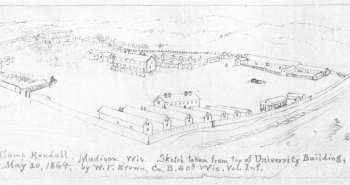 Camp Randall Madison Wis. Sketch taken from top of University Building,
May 20, 1864. by W. F. Brown, Co. B. 40th Wis. Vol. Inf.